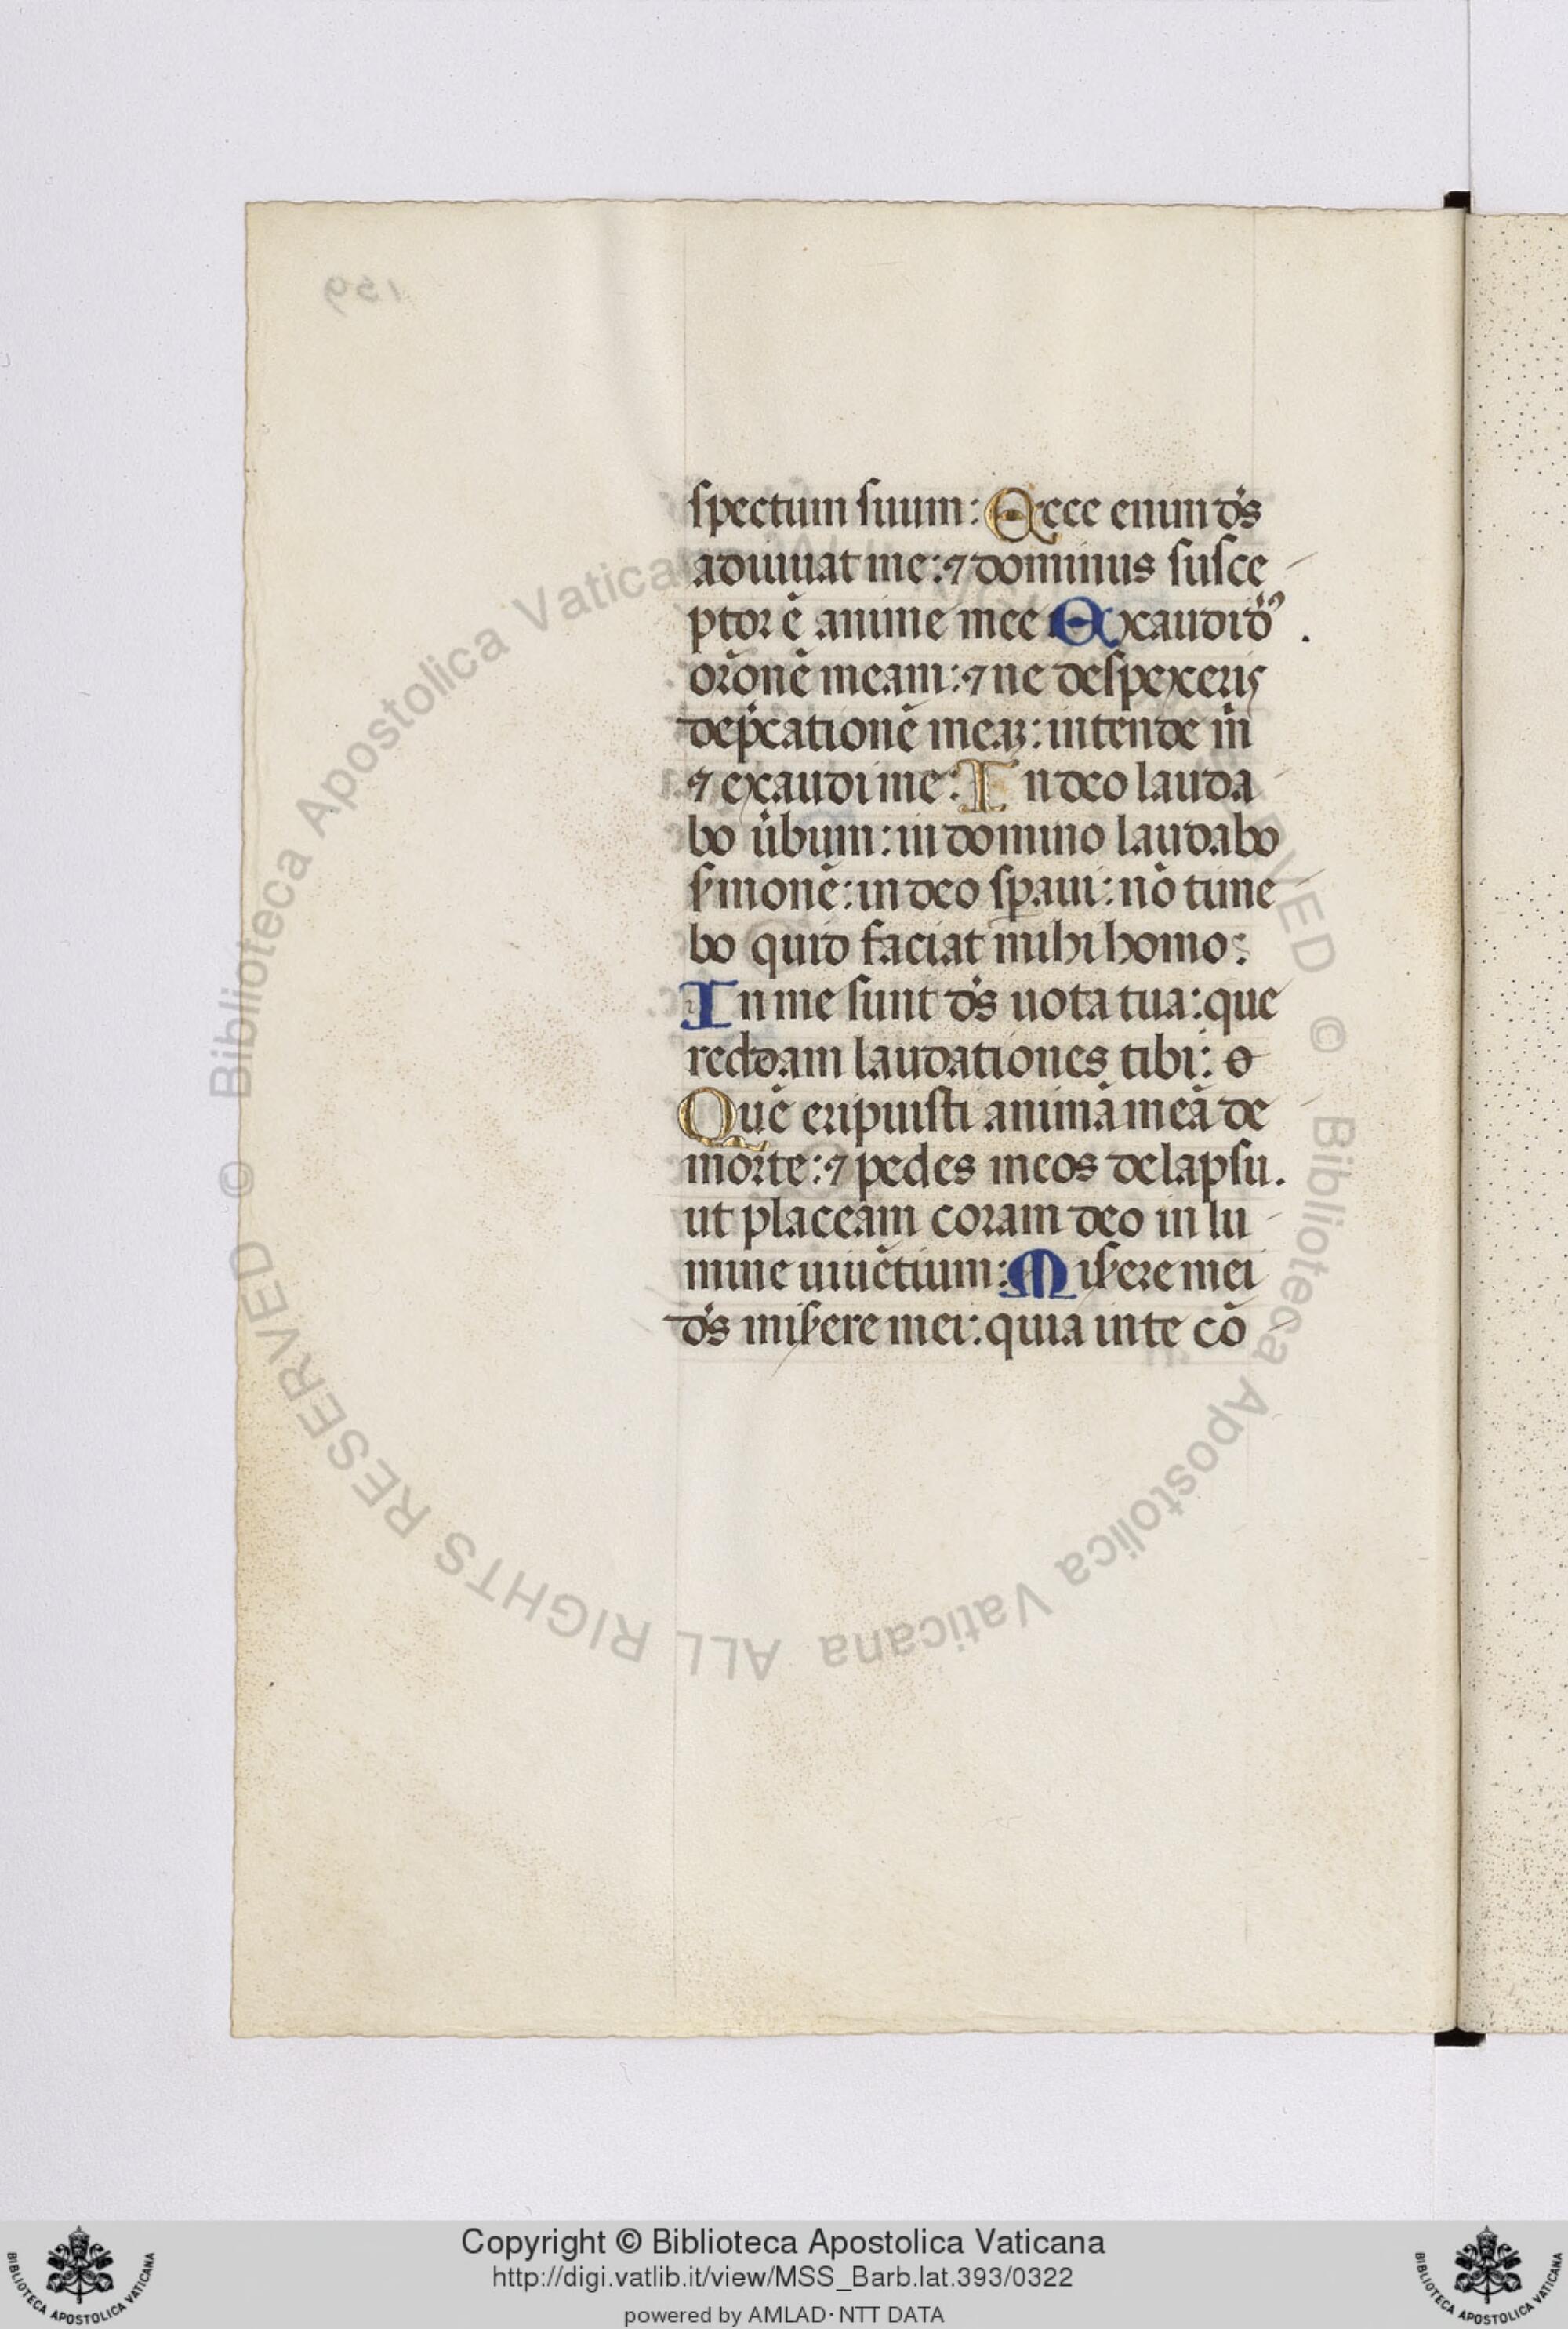 159
spectum suum: Ecce enim dꝰs
adiuuat me: ⁊ dominus susce
ptor ē anime mee Exaudi dꝰ .
orōnē meam: ⁊ ne despexeris
dep̄cationē meaꝫ: intende m̄
⁊ exaudi me: In deo lauda
bo u̇bum: in domino laudabo
s̓monē: in deo sꝑaui: nō time
bo quid faciat mihi homo:
In me sunt dꝰs uota tua: que
reddam laudationes tibi: o
Quē eripuisti animā meā de
morte: ⁊ pedes meos de lapsu.
ut placeam coram deo in lu
mine uiuētium: Mis̓ere mei
dꝰs mis̓ere mei: quia in te cō
© Biblioteca Apostolica Vaticana ALL RIGHTS RESERVED © Biblioteca Apostolica Vaticana ALL RIGHTS RESERVED
Copyright © Biblioteca Apostolica Vaticana
http://digi.vatlib.it/view/MSS_Barb.lat.393/0322
powered by AMLAD·NTT DATA
BIBLIOTECA APOSTOLICA VATICANA
BIBLIOTECA APOSTOLICA VATICANA